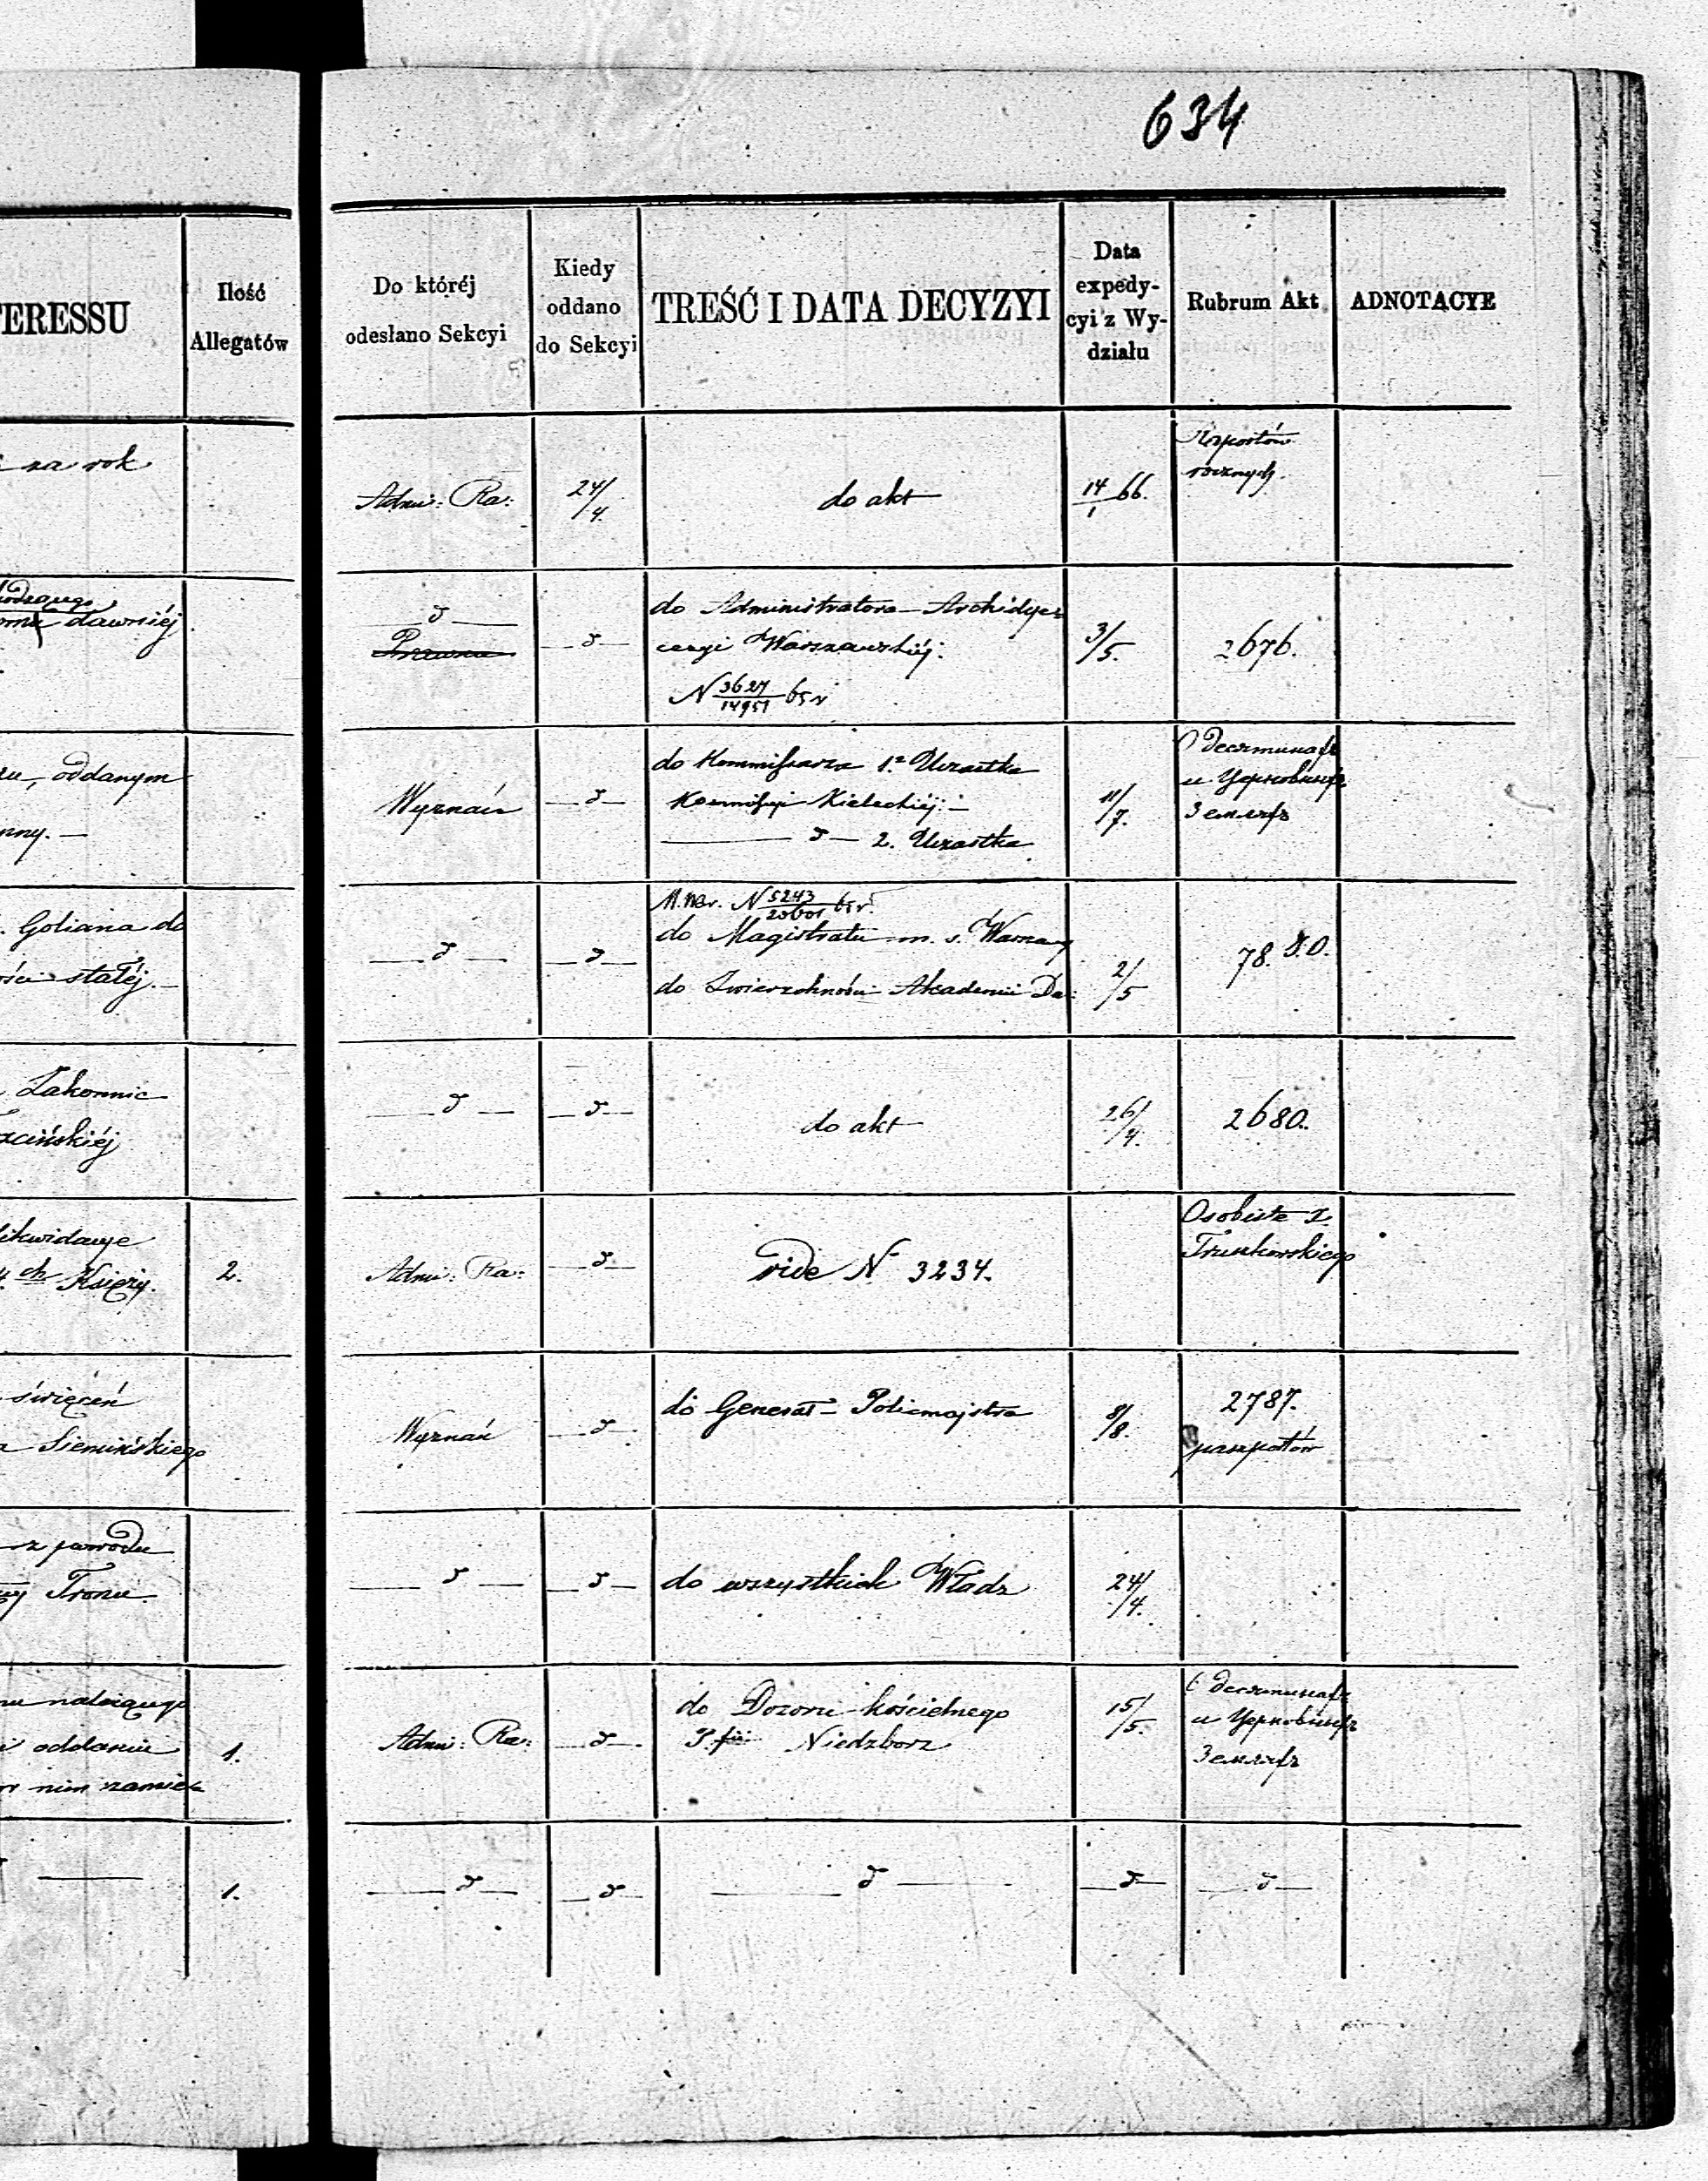 634
TERESSU
Ilość
Allegatów
Do któréj
odesłano Sekcyi
Kiedy
oddano
do Sekcyi
TREŚĆ I DATA DECYZYI
Data
expedy-
cyi z Wy-
działu
Rubrum Akt
ADNOTACYE
za rok
Admi: Ra:
24/4.
do akt
14/1 66.
Raportów
rocznych.
dawniéj
d
Prawna
d
do Administratora Archidyec
cezyi Warszawskiéj.
N 3627/14951 65 r
3/5.
2676.
oddanym
Wyznań
d
do Kommissarza 1. Uczastka
Kommissyi Kieleckiéj
d 2. Uczastka
11/7.
О десятинахъ
и Церковныхъ
Земляхъ
Goliana do
stałéj.
d
d
N 5243/20601 65 r.
do Magistratu m. s. Warszawy
do Zwierzchności Akademii Du:
2/5
78. D.O.
Zakonnic
d
d
do akt
26/4.
2680.
likwidacye
4.ch Księży.
2.
Admi: Ra:
d
vide N 3234.
Osobiste X
Truszkowskiego
święceń
Siemińskiego
Wyznań
d
do Generał-Policmajstra
8/8.
2787.
paszportów
z powodu
Tronu
d
d
do wszystkich Władz
24/4.
należącego
oddaniu
w nim
1.
Admi: Ra:
d
do Dozoru kościelnego
P.fii Niedzborz
15/5.
О десятинахъ
и Церковныхъ
Земляхъ
1.
d
d
d
d
d